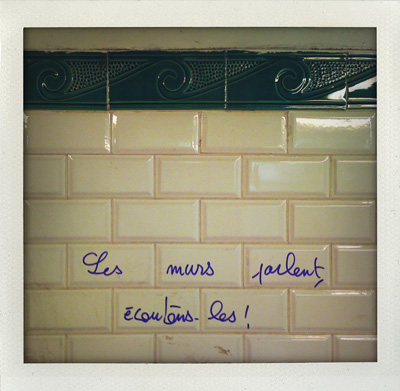 Les murs parlent,
écoutons-les !